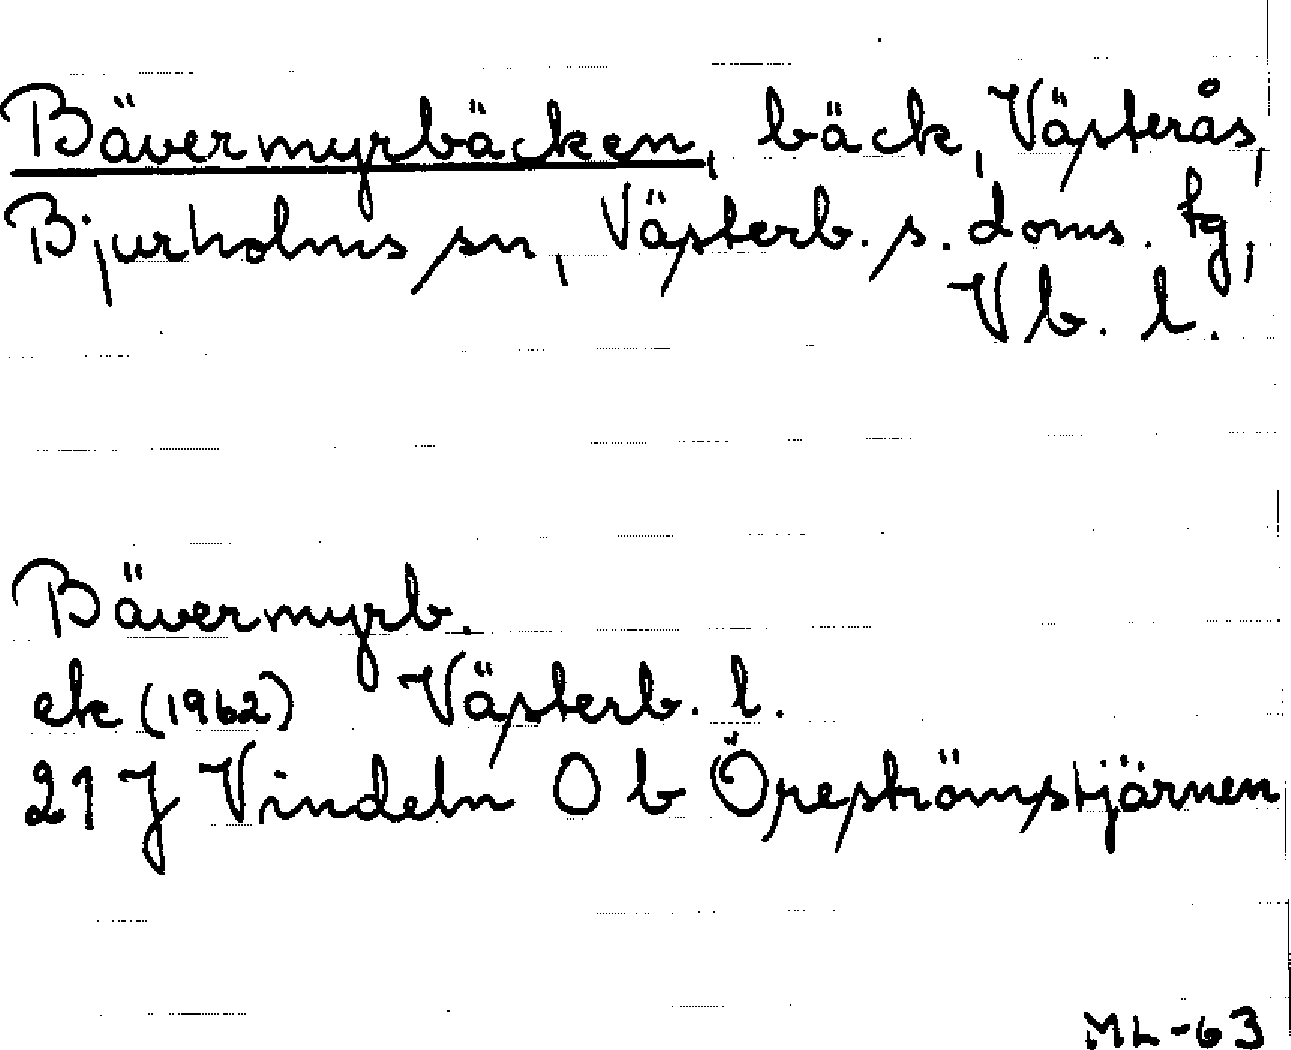 Bävermyrbäcken, bäck, Västerås,
Bjurholms sn, Västerb. s. doms. tg,
Vb. l.
Bävermyrb.
ek (1962) Västerb. l.
21 J Vindeln O b Örepströmstjärnen
ML-63